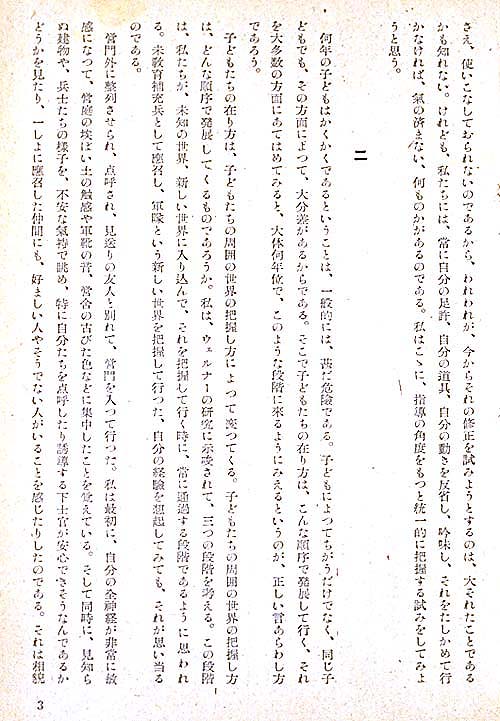 さえ、使いこなしておられないのであるから、われわれが、今からそれの修正を試みようとするのは、大それたことである
かも知れない。けれども、私たちには、常に自分の足許、自分の道具、自分の動きを反省し、吟味し、それをたしかめて行
かなければ、氣の済まない、何ものかがあるのである。私はこゝに、指導の角度をもつと統一的に把握する試みをしてみよ
うと思う。
二
何年の子どもはかくかくであるということは、一般的には、甚だ危險である。子どもによつてちがうだけでなく、同じ子
どもでも、その方面によつて、大分差があるからである。そこで子どもたちの在り方は、こんな順序で発展して行く、それ
を大多数の方面にあてはめてみると、大体何年位で、このような段階に來るようにみえるというのが、正しい言あらわし方
であろう。
子どもたちの在り方は、子どもたちの周囲の世界の把握し方によつて変つてくる。子どもたちの周囲の世界の把握し方
は、どんな順序で発展してくるものであろうか。私は、ウェルナーの研究に示唆されて、三つの段階を考える。この段階
は、私たちが、未知の世界、新しい世界に入り込んで、それを把握して行く時に、常に通過する段階であるように思われ
る。未教育補充兵として應召し、軍隊という新しい世界を把握して行つた、自分の経験を想起してみても、それが思い当る
のである。
営門外に整列させられ、点呼され、見送りの友人と別れて、営門を入つて行つた。私は最初に、自分の全神経が非常に敏
感になつて、営庭の埃ぽい土の触感や軍靴の音、営舎の古びた色などに集中したことを覚えている。そして同時に、見知ら
ぬ建物や、兵士たちの様子を、不安な氣持で眺め、特に自分たちを点呼したり誘導する下士官が安心できそうなんであるか
どうかを見たり、一しよに應召した仲間にも、好ましい人やそうでない人がいることを感じたりしたのである。それは相貌
3